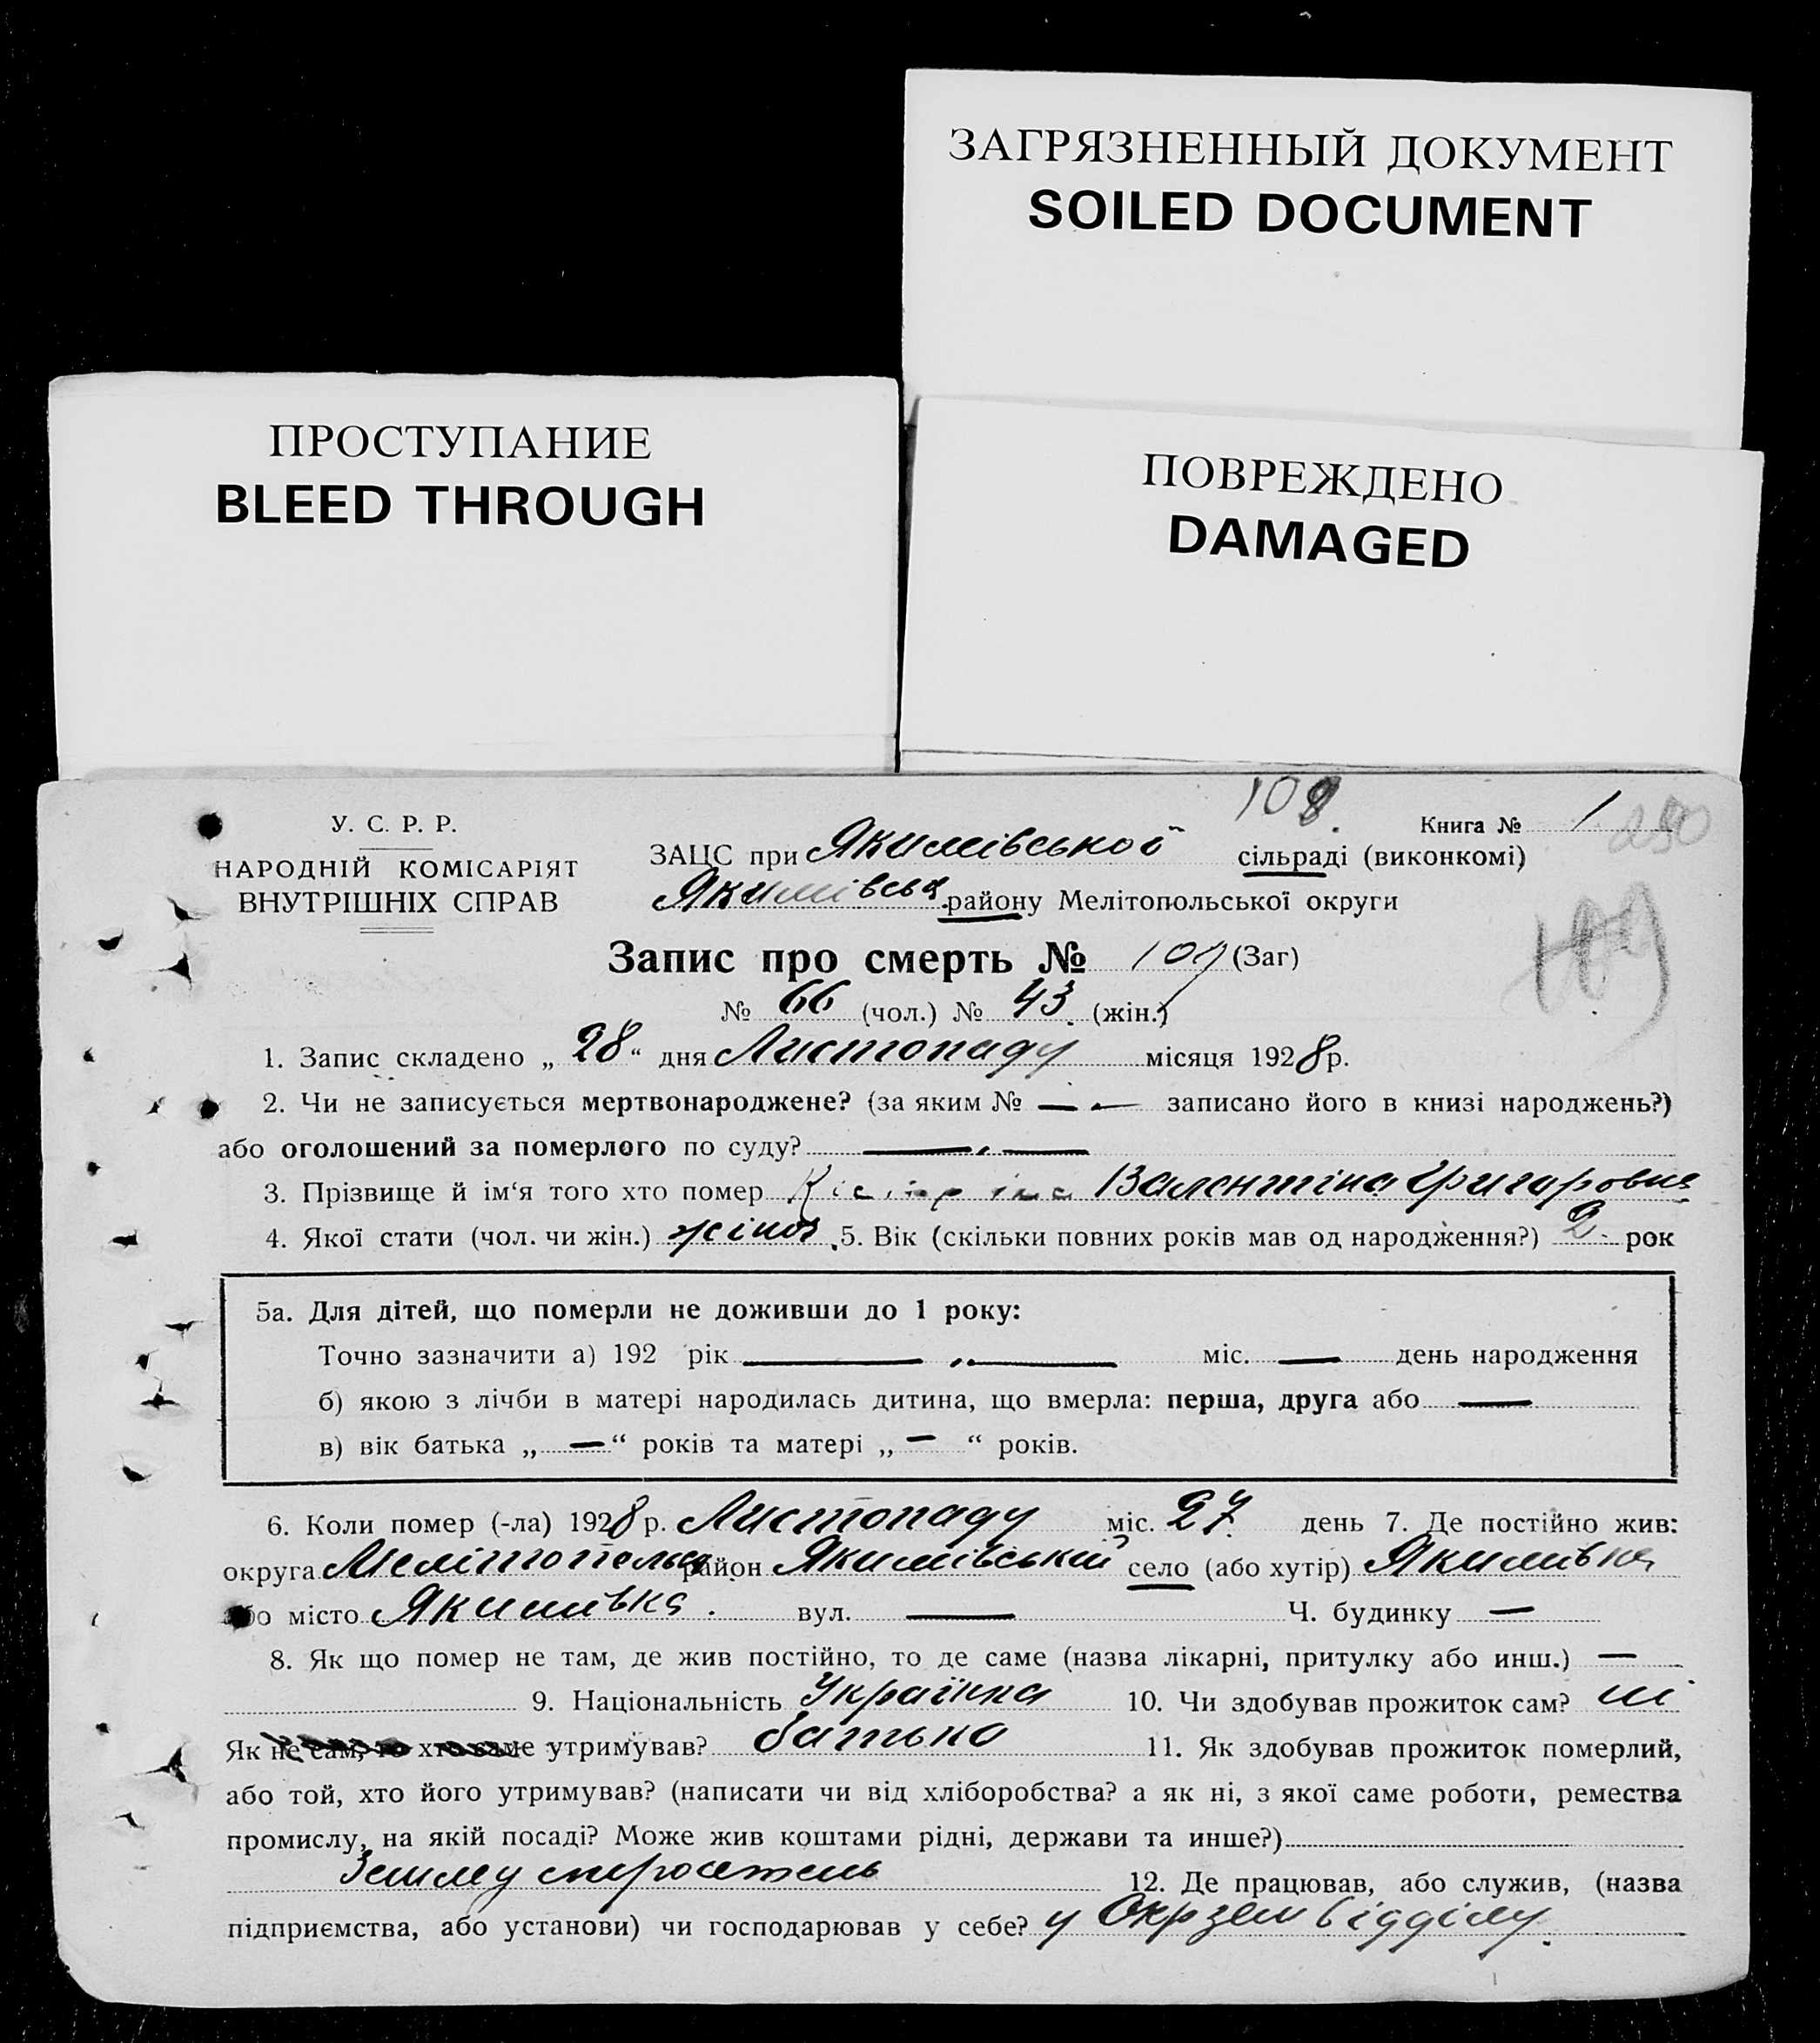 ЗАГРЯЗНЕННЫЙ ДОКУМЕНТ
SOILED DOCUMENT
ПРОСТУПАНИЕ
BLEED THROUGH
ПОВРЕЖДЕНО
DAMAGED
108.
Книга № 1
250
У. С. Р. Р.
НАРОДНІЙ КОМІСАРІЯТ
ВНУТРІШНІХ СПРАВ
ЗАЦС при Якимівської сільраді (виконкомі)
Якимівськ району Мелітопольської округи
Запис про смерть № 109 (Заг)
№ 66 (чол.) № 43 (жін.)
1. Запис складено „ 28 “ дня Листопаду місяця 1928 р.
2. Чи не записується мертвонароджене? (за яким № — — записано його в книзі народжень?)
або оголошений за померлого по суду? — „ —
3. Прізвище й ім‘я того хто помер Валентіна Григоровна
4. Якої стати (чол. чи жін.) жіноч. 5. Вік (скільки повних років мав од народження?) 2 рок
5а. Для дітей, що померли не доживши до 1 року:
Точно зазначити а) 192 рік — „ — міс. — день народження
б) якою з лічби в матері народилась дитина, що вмерла: перша, друга або —
в) вік батька „ — “ років та матері „ — “ років.
6. Коли помер (-ла) 1928 р. Листопаду міс. 27 день 7. Де постійно жив:
округа Мелітопольск район Якимівський село (або хутір) Якимівка
або місто Якимівка. вул. — Ч. будинку —
8. Як що помер не там, де жив постійно, то де саме (назва лікарні, притулку або инш.) —
9. Національність Українка 10. Чи здобував прожиток сам? ні
Як не сам, то хто саме утримував? батько 11. Як здобував прожиток померлий,
або той, хто його утримував? (написати чи від хліборобства? а як ні, з якої саме роботи, ремества
промислу, на якій посаді? Може жив коштами рідні, держави та инше?)
12. Де працював, або служив, (назва
підприємства, або установи) чи господарював у себе? у Окрземвідділу.